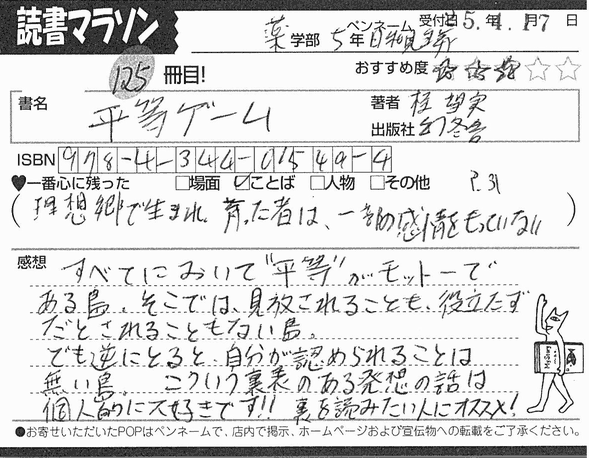 読書マラソン
ペンネーム 受付日 25.年4.月17日
薬学部 5年
125冊目! おすすめ度 ☆☆☆☆☆
書名 平等ゲーム 著者 桂 望実
出版社 幻冬舎
ISBN 978-4-344-01549-4
♥一番心に残った □場面 ☑ことば □人物 □その他 P.31
(理想郷で生まれ、育った者は、一部の感情をもっていない)
感想 すべてにおいて"平等"がモットーで
ある島。そこでは、見放されることも、役立たず
だとされることもない島。
でも逆にとると、自分が認められることは
無い島。 こういう裏表のある発想の話は
個人的に大好きです!! 裏を読みたい人にオススメ!
●お寄せいただいたPOPはペンネームで、店内で掲示、ホームページおよび宣伝物への転載をご了承ください。